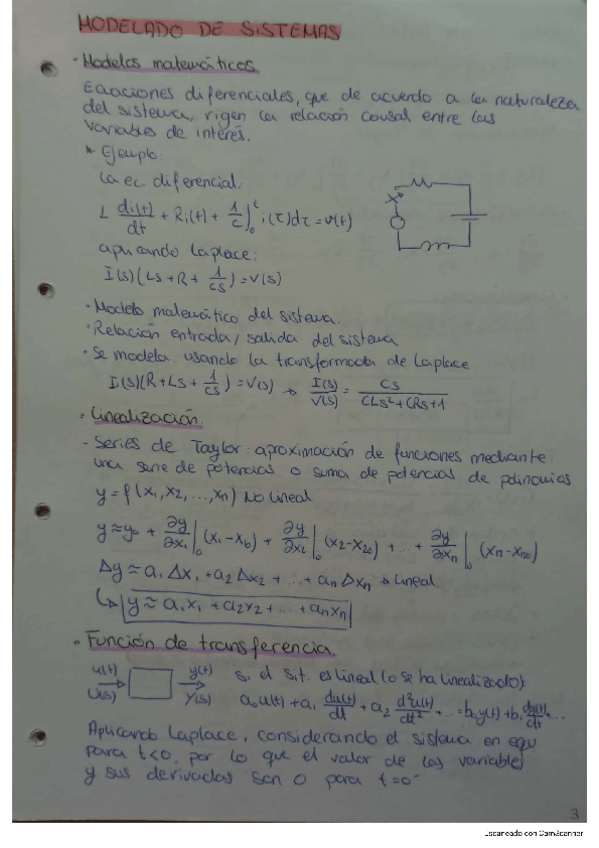 MODELADO DE SISTEMAS
· Modelos matemáticos.
Ecuaciones diferenciales, que de acuerdo a la naturaleza
del sistema, rigen la relación causal entre las
variables de interés.
* Ejemplo:
La ec. diferencial.
L di(t)/dt + Ri(t) + 1/C ∫₀ᵗ i(τ)dτ = v(t)
aplicando Laplace:
I(s)(Ls + R + 1/CS) = V(s)
· Modelo matemático del sistema.
· Relación entrada/salida del sistema
· Se modela usando la transformada de Laplace
I(s)(R+Ls+1/CS) = V(s) → I(s)/V(s) = CS/(CLS²+CRS+1)
· Linealización.
- Series de Taylor: aproximación de funciones mediante
una serie de potencias o suma de potencias de polinomios
y = f(x₁, x₂, ..., xn) No lineal
y ≈ y₀ + ∂y/∂x₁|₀ (x₁-x₁₀) + ∂y/∂x₂|₀ (x₂-x₂₀) + ... + ∂y/∂xn|₀ (xn-xn₀)
Δy ≈ a₁Δx₁ + a₂Δx₂ + ... + anΔxn → Lineal
↳ y ≈ a₁x₁ + a₂x₂ + ... + anxn
· Función de transferencia.
u(t) y(t) si el sist. es lineal (o se ha linealizado):
U(s) Y(s) a₀u(t) + a₁ du(t)/dt + a₂ d²u(t)/dt² + ... = b₀y(t) + b₁ dy(t)/dt + ...
Aplicando Laplace, considerando el sistema en equ
para t<0, por lo que el valor de las variables
y sus derivadas son 0 para t=0⁻
3
Escaneado con CamScanner